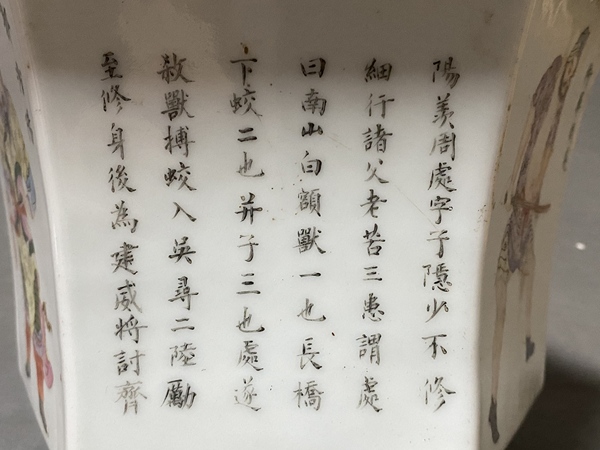 陽羨周處字子隱少不修
細行諸父老苦三患謂處
曰南山白額獸一也長橋
下蛟二也并子三也處遂
殺獸搏蛟入吳尋二陸勵
至修身後為建威將討齊